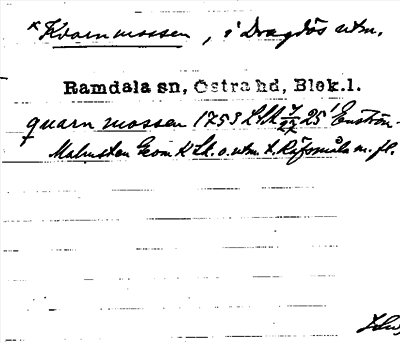 * Kvarnmossen, i Dragsös utm.
Ramdala sn, Östra hd, Blek.l.
quarn mossen 1753 LSA 25' Enström -
Malmsten Geom K o. utm. t. Rösmåla m. fl.